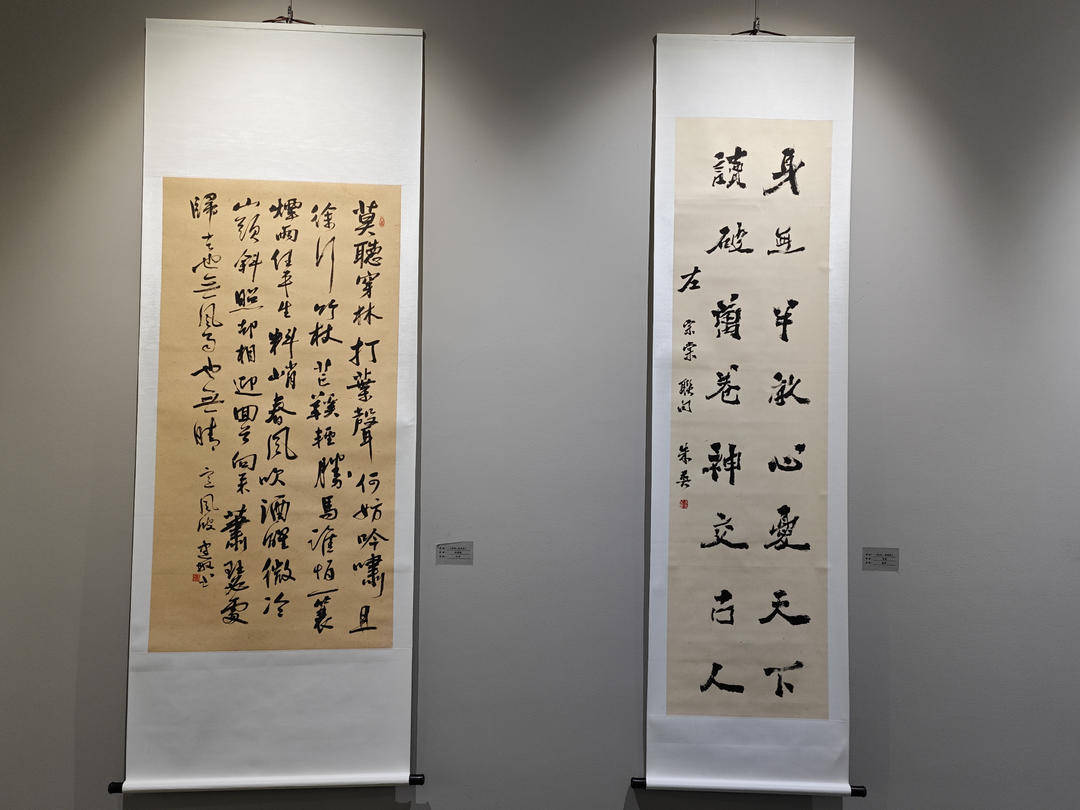 莫聽穿林打葉聲何妨吟嘯且
徐行竹杖芒鞵輕勝馬誰怕一蓑
煙雨任平生料峭春風吹酒醒微冷
山頭斜照却相迎回首向来蕭瑟處
歸去也無風雨也無晴 定風波 建 书
身無半畝心憂天下
讀破萬卷神交古人
左宗棠聯句 朱